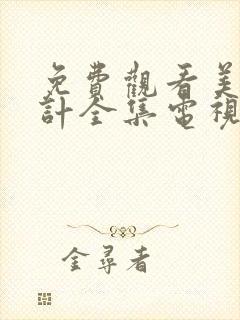 免費觀看美
計全集電視
金尋者